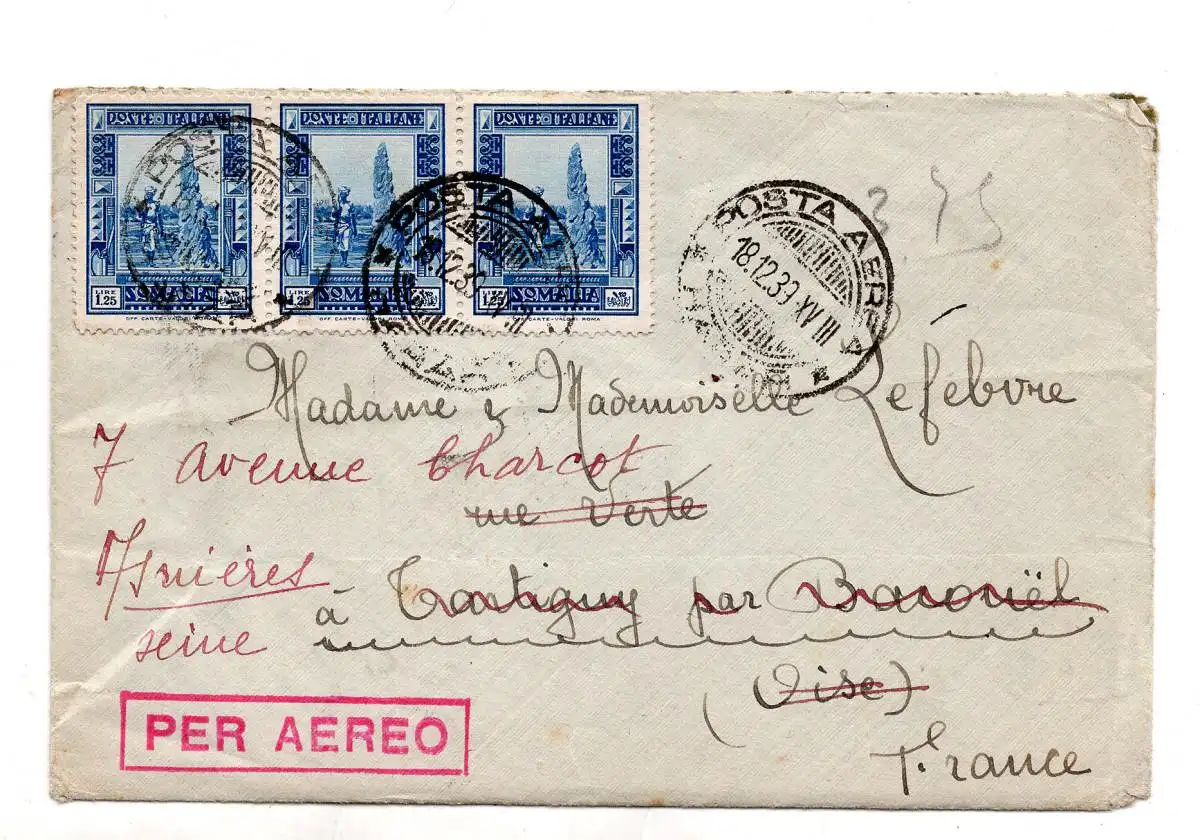 POSTE ITALIANE POSTE ITALIANE POSTE ITALIANE
LIRE 1.25 SOMALIA LIRE 1.25 SOMALIA LIRE 1.25 SOMALIA
OFF. CARTE-VALORI ROMA OFF. CARTE-VALORI ROMA OFF. CARTE-VALORI ROMA
POSTA
POSTA AER
18.12.39
POSTA AEREA
18.12.39 XVIII
3.75
Madame & Mademoiselle Lefébvre
7 avenue Charcot
rue Verte
Asnières
à Tartigny par Bacouël
seine
(Oise)
PER AEREO
France